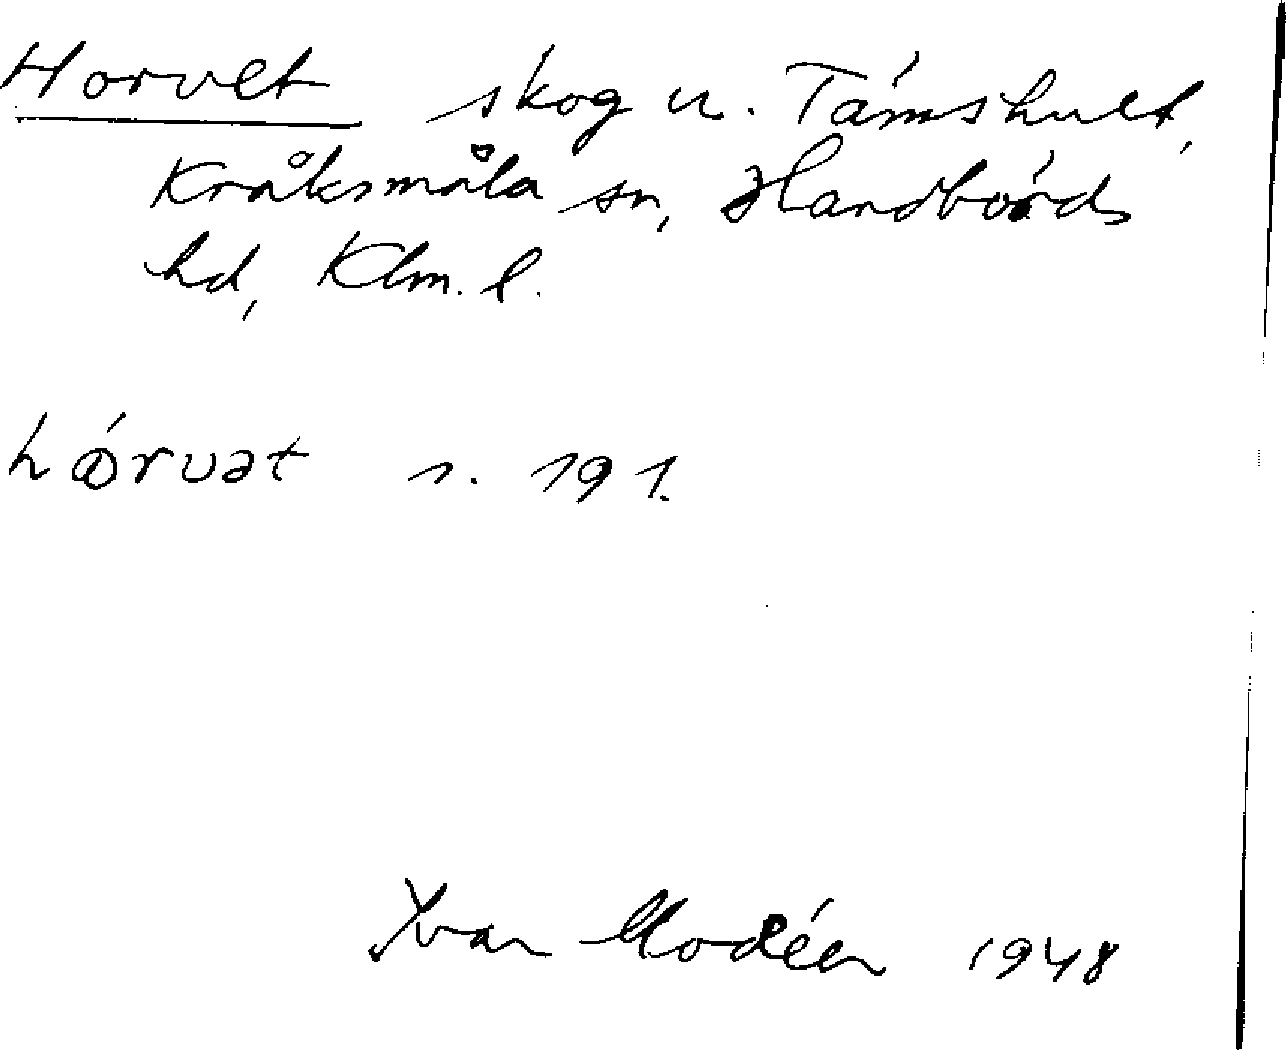 Horvet skog u. Támshult,
Kråksmåla sn, Handbörds
hd, Klm. l.
hǿrvət s. 191.
Yvar Modéer 1948